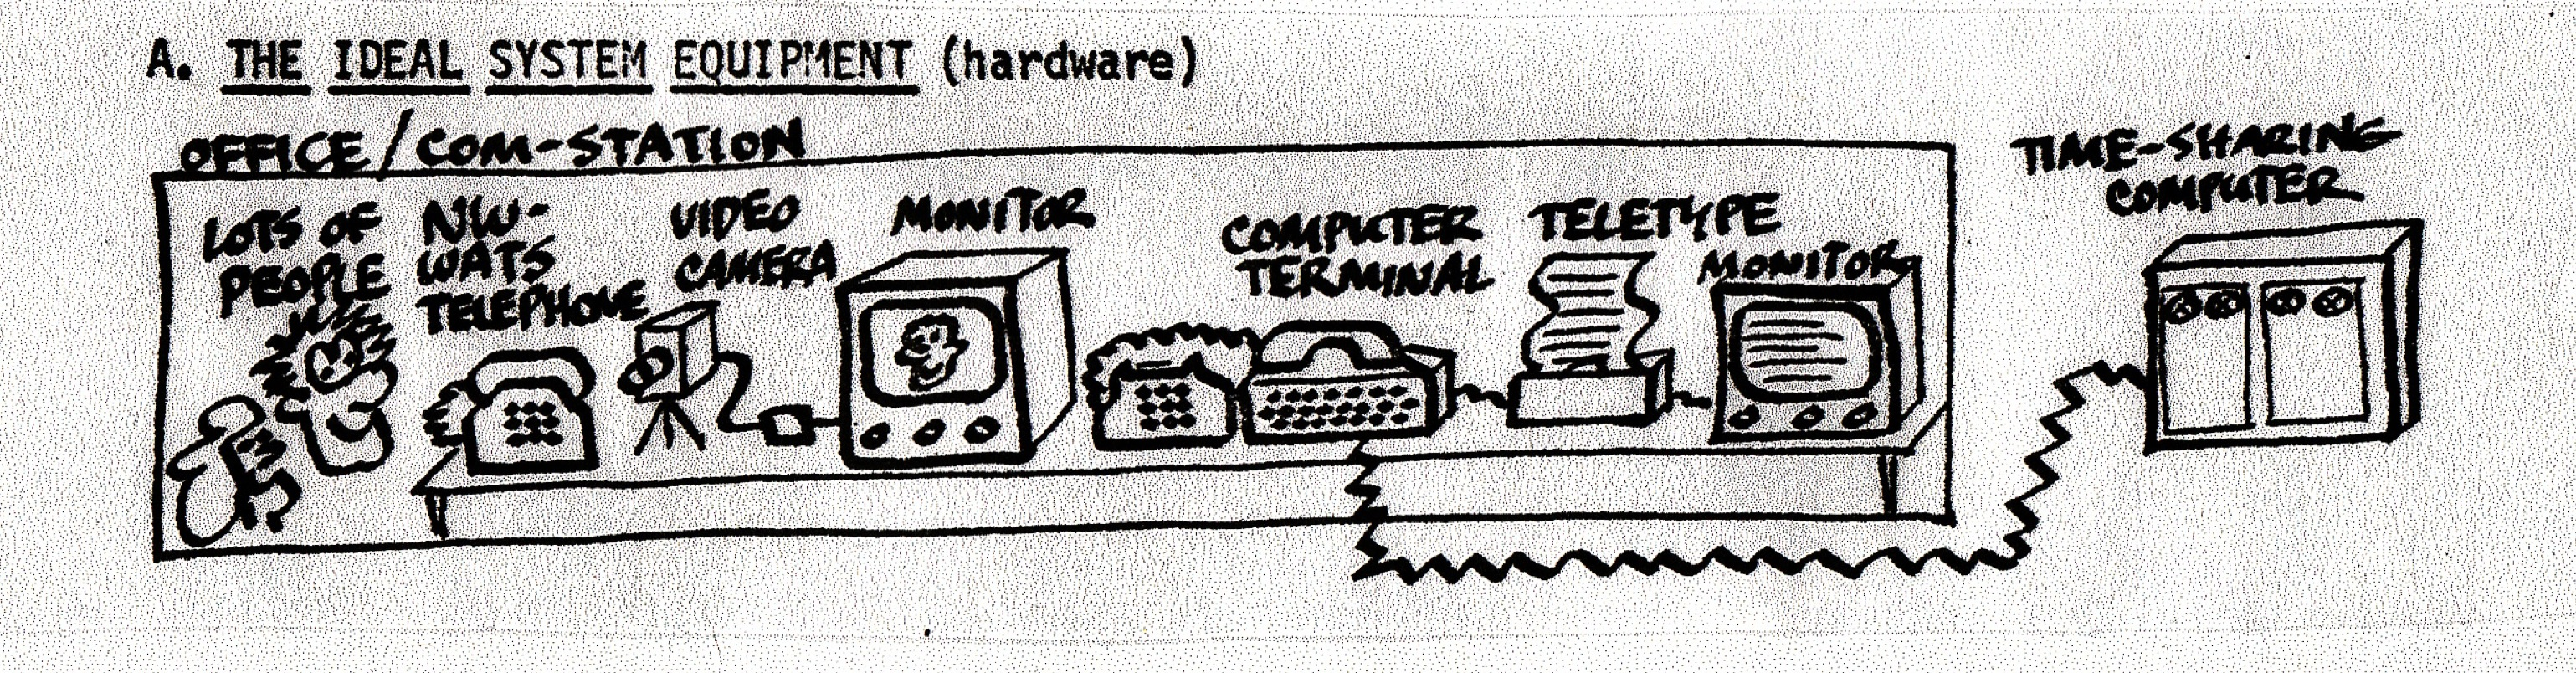 A. THE IDEAL SYSTEM EQUIPMENT (hardware)
OFFICE/COM-STATION
LOTS OF
PEOPLE
NW-
WATS
TELEPHONE
VIDEO
CAMERA
MONITOR
COMPUTER
TERMINAL
TELETYPE
MONITOR
TIME-SHARING
COMPUTER